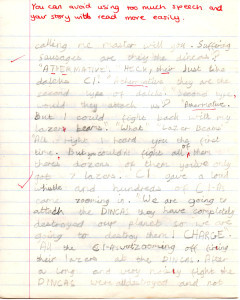 You can avoid using too much speech and
your story will read more easily.
calling me master will you. Suffering
sausages are they the dincas
"AFFERMATIVE. Heck, that Just like
daleks C1. "Affermative they are the
second type of dalek" "Second type,
would they attack us? "Affermative.
But I could fight back with my
lazer beams. "What lazer beams"
"All right I heard you the first
line. But you could fight all of them
those dozens of them you've only
got 2 lazers. C1 gave a loud
whistle and hundreds of C1-A
came zooming in. "We are going to
attack the DINCAS they have completely
destroyed our planet so we are
going to destroy them! CHARGE.
All the C1-A zooming off firing
their lazers at the DINCAS. After
a long and very fight the
DINCAS were and not